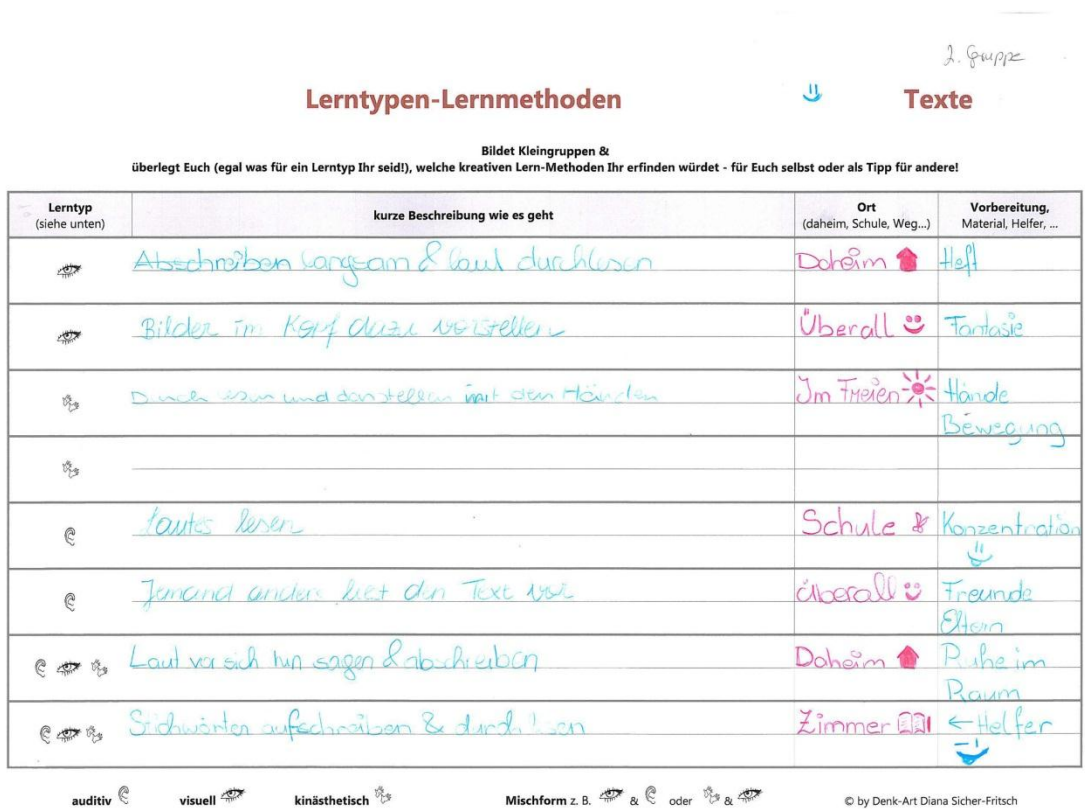 2. Gruppe
Lerntypen-Lernmethoden Texte
Bildet Kleingruppen &
überlegt Euch (egal was für ein Lerntyp Ihr seid!), welche kreativen Lern-Methoden Ihr erfinden würdet - für Euch selbst oder als Tipp für andere!
Lerntyp kurze Beschreibung wie es geht Ort Vorbereitung,
(siehe unten) (daheim, Schule, Weg...) Material, Helfer, ...
Abschreiben langsam & laut durchlesen Daheim Heft
Bilder im Kopf dazu vorstellen Überall Fantasie
Durch lesen und darstellen mit den Händen Im Freien Hände
Bewegung
Lautes lesen Schule Konzentration
Jemand anders liet den Text vor überall Freunde
Eltern
Laut vor sich hin sagen & abschreiben Daheim Ruhe im
Raum
Stichwörter aufschreiben & durch lesen Zimmer ← Helfer
auditiv visuell kinästhetisch Mischform z. B. & oder & © by Denk-Art Diana Sicher-Fritsch